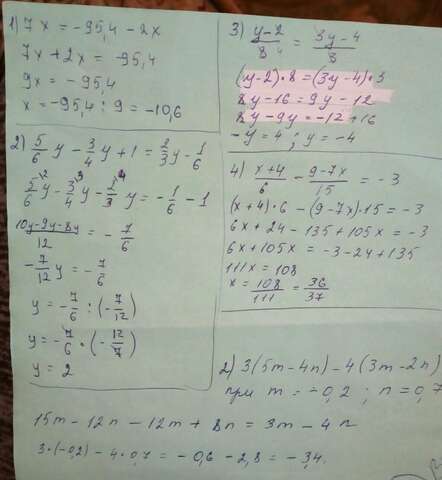 1) 7x = -95,4 - 2x
7x + 2x = -95,4
9x = -95,4
x = -95,4 : 9 = -10,6
2) 5/6 y - 3/4 y + 1 = 2/3 y - 1/6
5/6 y - 3/4 y - 2/3 y = -1/6 - 1
10y-9y-8y/12 = - 7/6
-7/12 y = -7/6
y = -7/6 : (-7/12)
y = -7/6 · (-12/7)
y = 2
3) y-2/8 = 3y-4/8
(y-2)·8 = (3y-4)·3
8y-16 = 9y-12
8y-9y = -12+16
-y = 4 ; y = -4
4) x+4/6 - 9-7x/15 = -3
(x+4)·6 - (9-7x)·15 = -3
6x+24-135+105x = -3
6x+105x = -3-24+135
111x = 108
x = 108/111 = 36/37
2) 3(5m-4n)-4(3m-2n)
при m = -0,2 ; n = 0,7
15m - 12n - 12m + 8n = 3m - 4n
3·(-0,2) - 4·0,7 = -0,6 - 2,8 = -3,4.